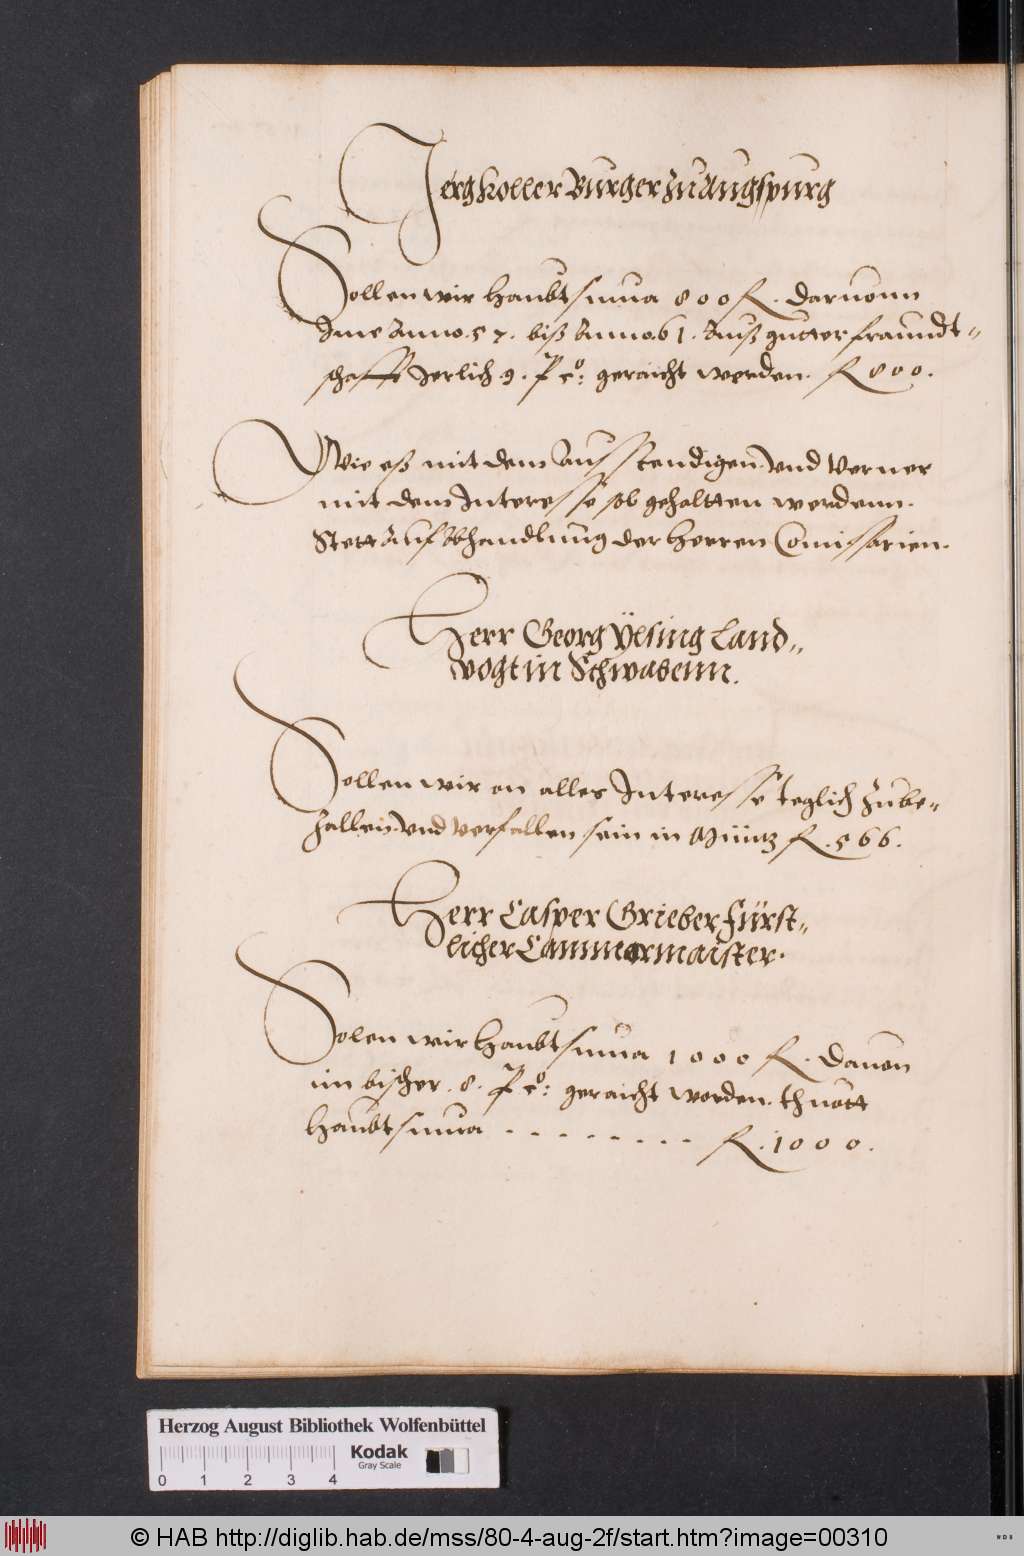 Jerg Koller Burger Zu Augspurg
Sollen wir Haubtsuma 800 fl. daruonn
Ime Anno .57. biß Anno .61. Auß gutter fraundt-
schafft Jerlich .9. p co: geraicht werden. fl 800.
Wie eß mit dem Ausstendigen, vnd verner
mit dem Interesse sol gehaltten werdenn.
Stett Auf Abhandlung der Herren Comissarien.
Herr Georg Ylsing Land-
vogt in Schwabenn.
Sollen wir on alles Interesse teglich Zube-
Zallen, vnd verfallen sein in Müntz fl. 566.
Herr Casper Grieber Fürst-
licher Cammermaister.
Solen wir Haubtsuma 1000 fl. dauon
im bißher .8. p co: geraicht worden. thuott
Haubtsuma - - - - - - - - - fl. 1000.
Herzog August Bibliothek Wolfenbüttel
Kodak
Gray Scale
0 1 2 3 4
© HAB http://diglib.hab.de/mss/80-4-aug-2f/start.htm?image=00310